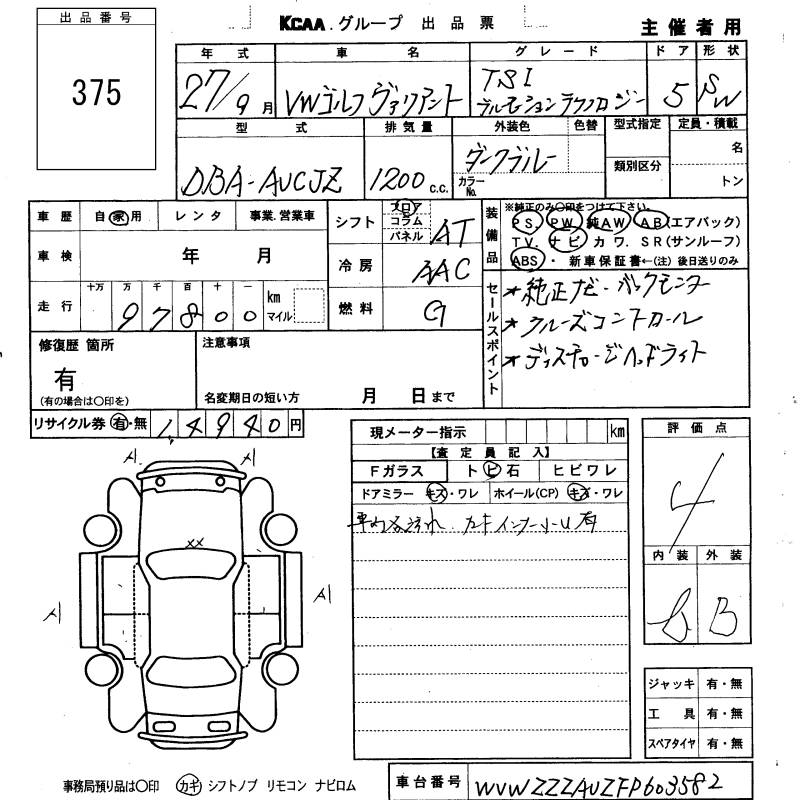 出品番号
375
KCAA.グループ 出品票
主催者用
年式 車名 グレード ドア 形状
27/9月 VWゴルフ ヴァリアント TSI 5 SW
型式 排気量 外装色 色替 型式指定 定員・積載
DBA-AUCJZ 1200 c.c. ダークブルー
カラーNo.
類別区分
名
トン
車歴 自家用 レンタ 事業.営業車
シフト フロア コラム パネル AT
車検 年 月
冷房 AAC
走行 十万 万 千 百 十 一 km マイル
97800
燃料 G
装備品
※純正のみ○印をつけて下さい。
PS. PW 純AW. AB(エアバック)
TV. ナビ カワ. SR(サンルーフ)
ABS・ 新車保証書←(注) 後日送りのみ
セールスポイント
*純正ナビ・バックモニター
*クルーズコントロール
*ディスチャージヘッドライト
修復歴 箇所
有
(有の場合は○印を)
注意事項
名変期日の短い方 月 日まで
リサイクル券 有・無 14940円
現メーター指示 km
【査定員記入】
Fガラス トビ石 ヒビワレ
ドアミラー キズ・ワレ ホイール(CP) キズ・ワレ
有
評価点
4
内装 外装
B B
A1 A1
XX
A1 A1
ジャッキ 有・無
工具 有・無
スペアタイヤ 有・無
事務局預り品は○印 カギ シフトノブ リモコン ナビロム
車台番号 WVWZZZAUZFP603582